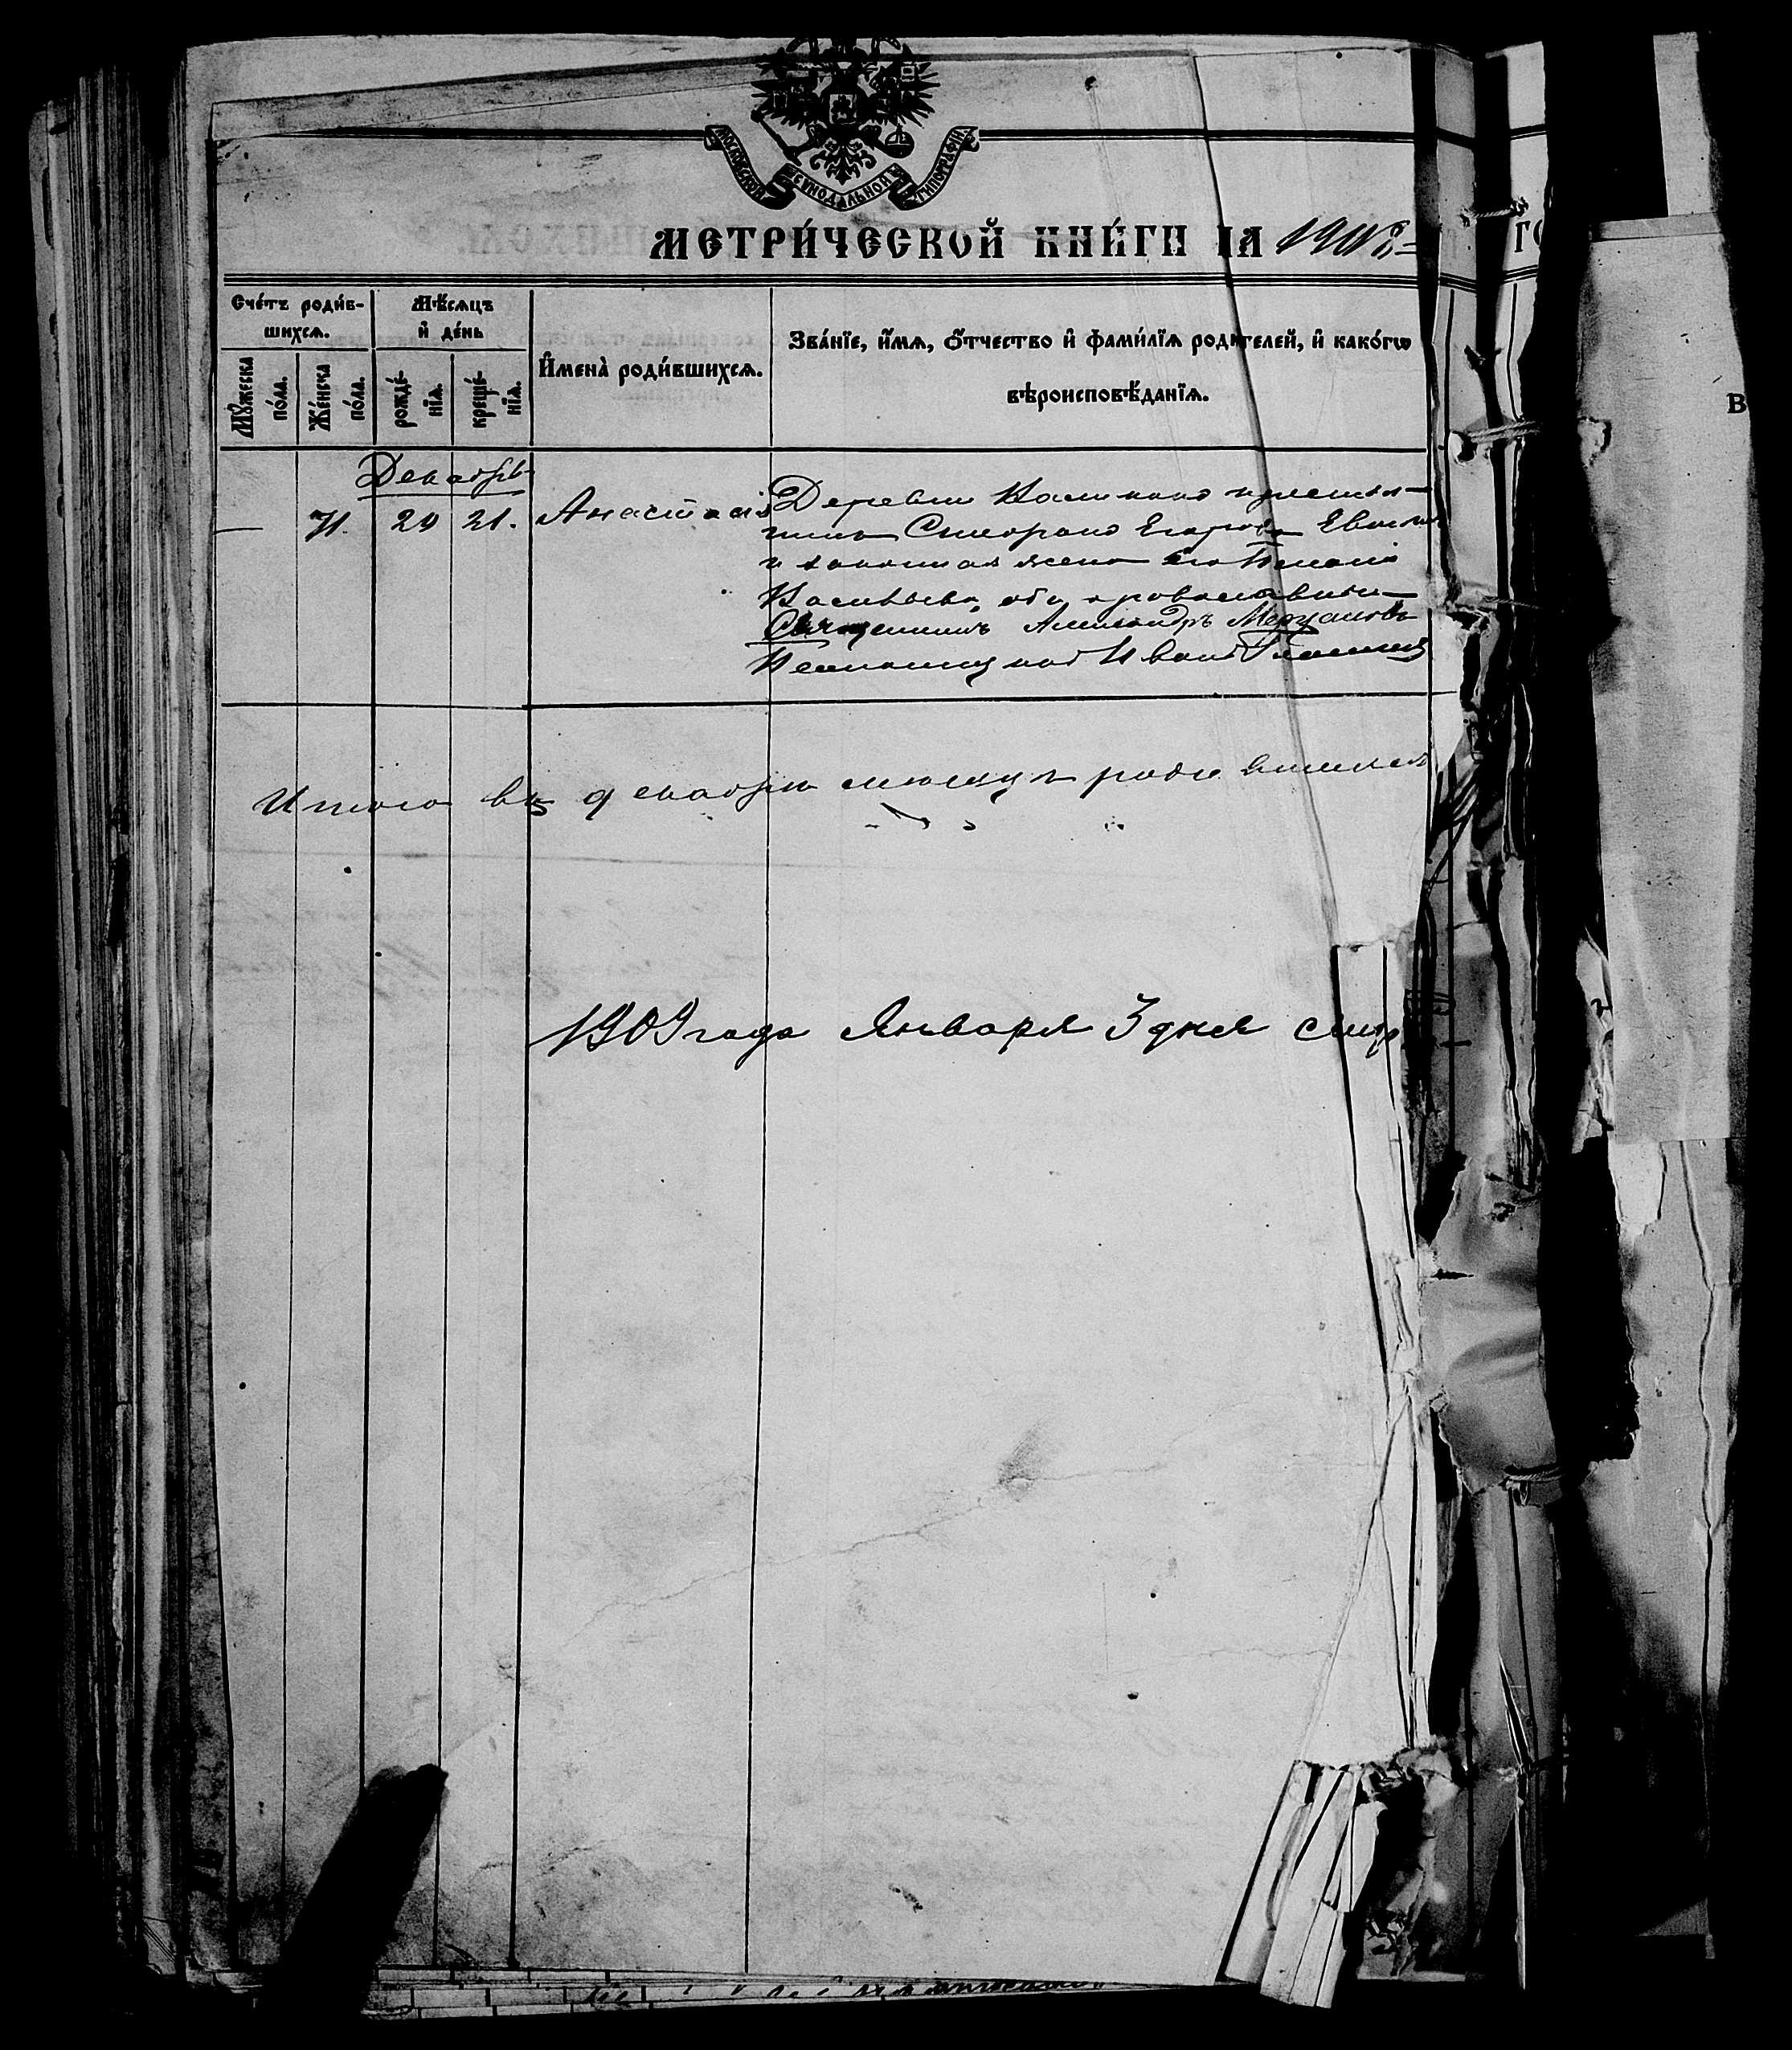 МОСКОВСКОЙ СѴНОДАЛЬНОЙ ТИПОГРАФІИ
МЕТРИ́ЧЕСКОЙ КНИ́ГИ НА 1908
Сче́тъ роди́в-
шихсѧ.
Мꙋ́жеска
по́ла.
Же́нска
по́ла.
Мѣ́сѧцъ
и҆ де́нь
рожде́-
нїѧ.
креще́-
нїѧ.
И҆мена̀ роди́вшихсѧ.
Зва́нїе, и҆́мѧ, ѻ҆́тчество и҆ фами́лїѧ роди́телей, и҆ како́гѡ
вѣроисповѣ́данїѧ.
Декабрь
71. 20 21. Анастасія
Деревни крестья-
нинъ Егоровъ
и законная жена его
Васильева, оба православные
Священникъ Александръ
Псаломщикъ Иванъ
Итого въ декабрѣ мѣсяцѣ родившихся
1909 года Января 3 дня
В